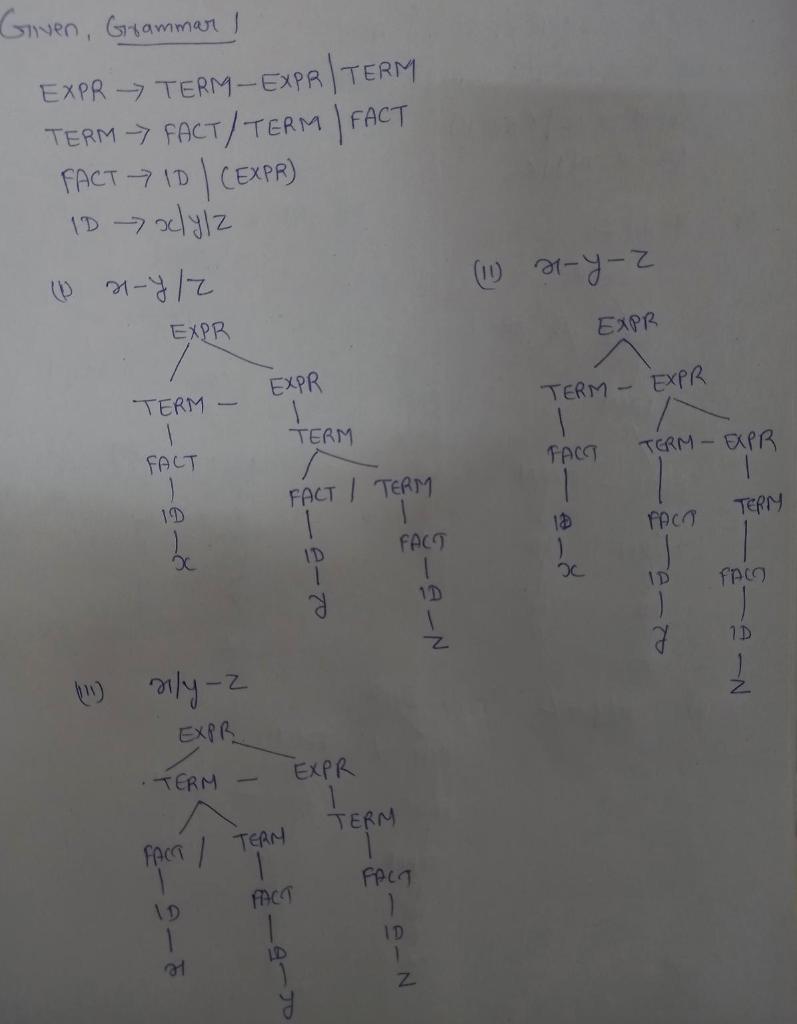 Given, Grammar 1
EXPR → TERM – EXPR | TERM
TERM → FACT / TERM | FACT
FACT → ID | (EXPR)
ID → x|y|z
(i) x-y/z
EXPR
TERM – EXPR
TERM
FACT
FACT / TERM
ID
FACT
x
ID
ID
y
z
(ii) x-y-z
EXPR
TERM – EXPR
FACT
TERM – EXPR
ID
FACT
TERM
x
ID
FACT
y
ID
z
(iii) x/y-z
EXPR
TERM – EXPR
TERM
FACT / TERM
FACT
ID
FACT
ID
x
ID
z
y